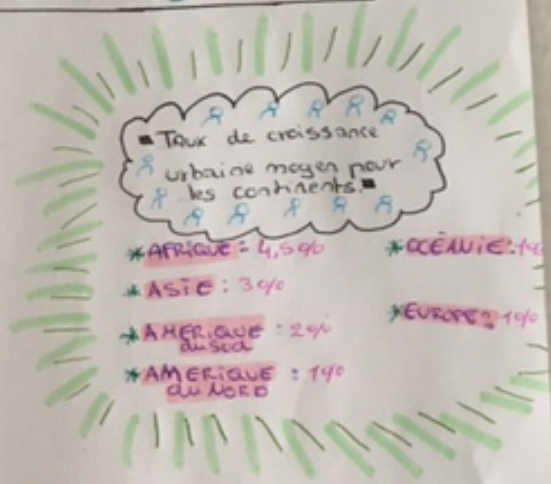 ▪ Taux de croissance
urbaine moyen pour
les continents.▪
* AFRIQUE : 4,5%
* ASIE : 3%
* AMERIQUE du sud : 2%
* AMERIQUE du NORD : 1%
* OCÉANIE : 1%
* EUROPE : 1%